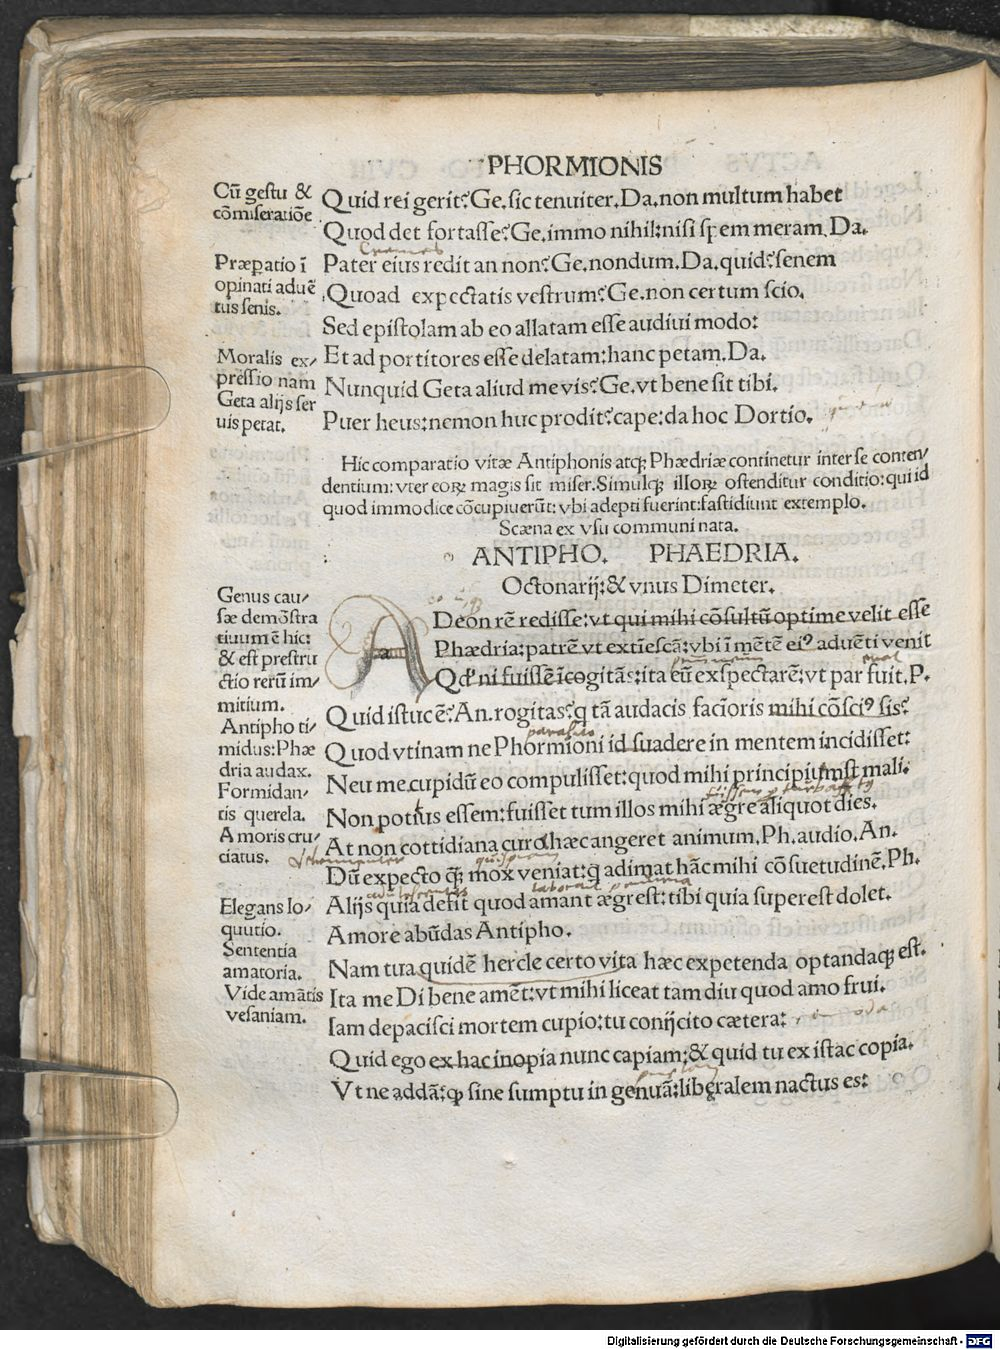 PHORMIONIS
Cū gestu &
cōmiseratiōe
Præparatio ī
opinati aduē
tus senis.
Moralis ex/
pressio nam
Geta alijs ser
uis petat.
Quid rei gerit? Ge. sic tenuiter. Da. non multum habet
Quod det fortasse? Ge. immo nihil: nisi spem meram. Da.
Pater eius redit an non? Ge. nondum. Da. quid? senem
Quoad expectatis vestrum? Ge. non certum scio.
Sed epistolam ab eo allatam esse audiui modo:
Et ad portitores esse delatam: hanc petam. Da.
Nunquid Geta aliud me vis? Ge. vt bene sit tibi.
Puer heus: nemon huc prodit? cape: da hoc Dortio.
Hic comparatio vitæ Antiphonis atqꝫ Phædriæ continetur inter se conten/
dentium: vter eoꝝ magis sit miser. Simulqꝫ illoꝝ ostenditur conditio: qui id
quod immodice cōcupiuerūt: vbi adepti fuerint: fastidiunt extemplo.
Scæna ex vsu communi nata.
ANTIPHO. PHAEDRIA.
Octonarij: & vnus Dimeter.
Genus cau/
sæ demōstra
tiuum ē hic:
& est prestru
ctio rerū im/
mitium.
Antipho ti/
midus: Phæ
dria audax.
Formidan/
tis querela.
Amoris cru/
ciatus.
Elegans lo/
quutio.
Sententia
amatoria.
Vide amātis
vesaniam.
A
a
Deon rē redisse: vt qui mihi cōsultū optime velit esse
Phædria: patrē vt extīescā: vbi ī mētē eiꝰ aduēti venit
Qď ni fuissē īcogitās: ita eū exspectarē: vt par fuit. P.
Quid istuc ē? An. rogitas? q tā audacis facīoris mihi cōsciꝰ sis?
Quod vtinam ne Phormioni id suadere in mentem incidisset:
Neu me cupidū eo compulisset: quod mihi principiū est mali:
Non potitus essem: fuisset tum illos mihi ægre aliquot dies.
At non cottidiana cura hæc angeret animum. Ph. audio. An.
Dū expecto qꝫ mox veniat: q adimat hāc mihi cōsuetudinē. Ph.
Alijs quia defit quod amant ægrest: tibi quia superest dolet.
Amore abūdas Antipho.
Nam tua quidē hercle certo vita hæc expetenda optandaqꝫ est.
Ita me Di bene amēt: vt mihi liceat tam diu quod amo frui.
Iam depacisci mortem cupio: tu conijcito cætera:
Quid ego ex hac inopia nunc capiam: & quid tu ex istac copia.
Vt ne addā: ꝙ sine sumptu ingenuā: liberalem nactus es:
Digitalisierung gefördert durch die Deutsche Forschungsgemeinschaft - DFG